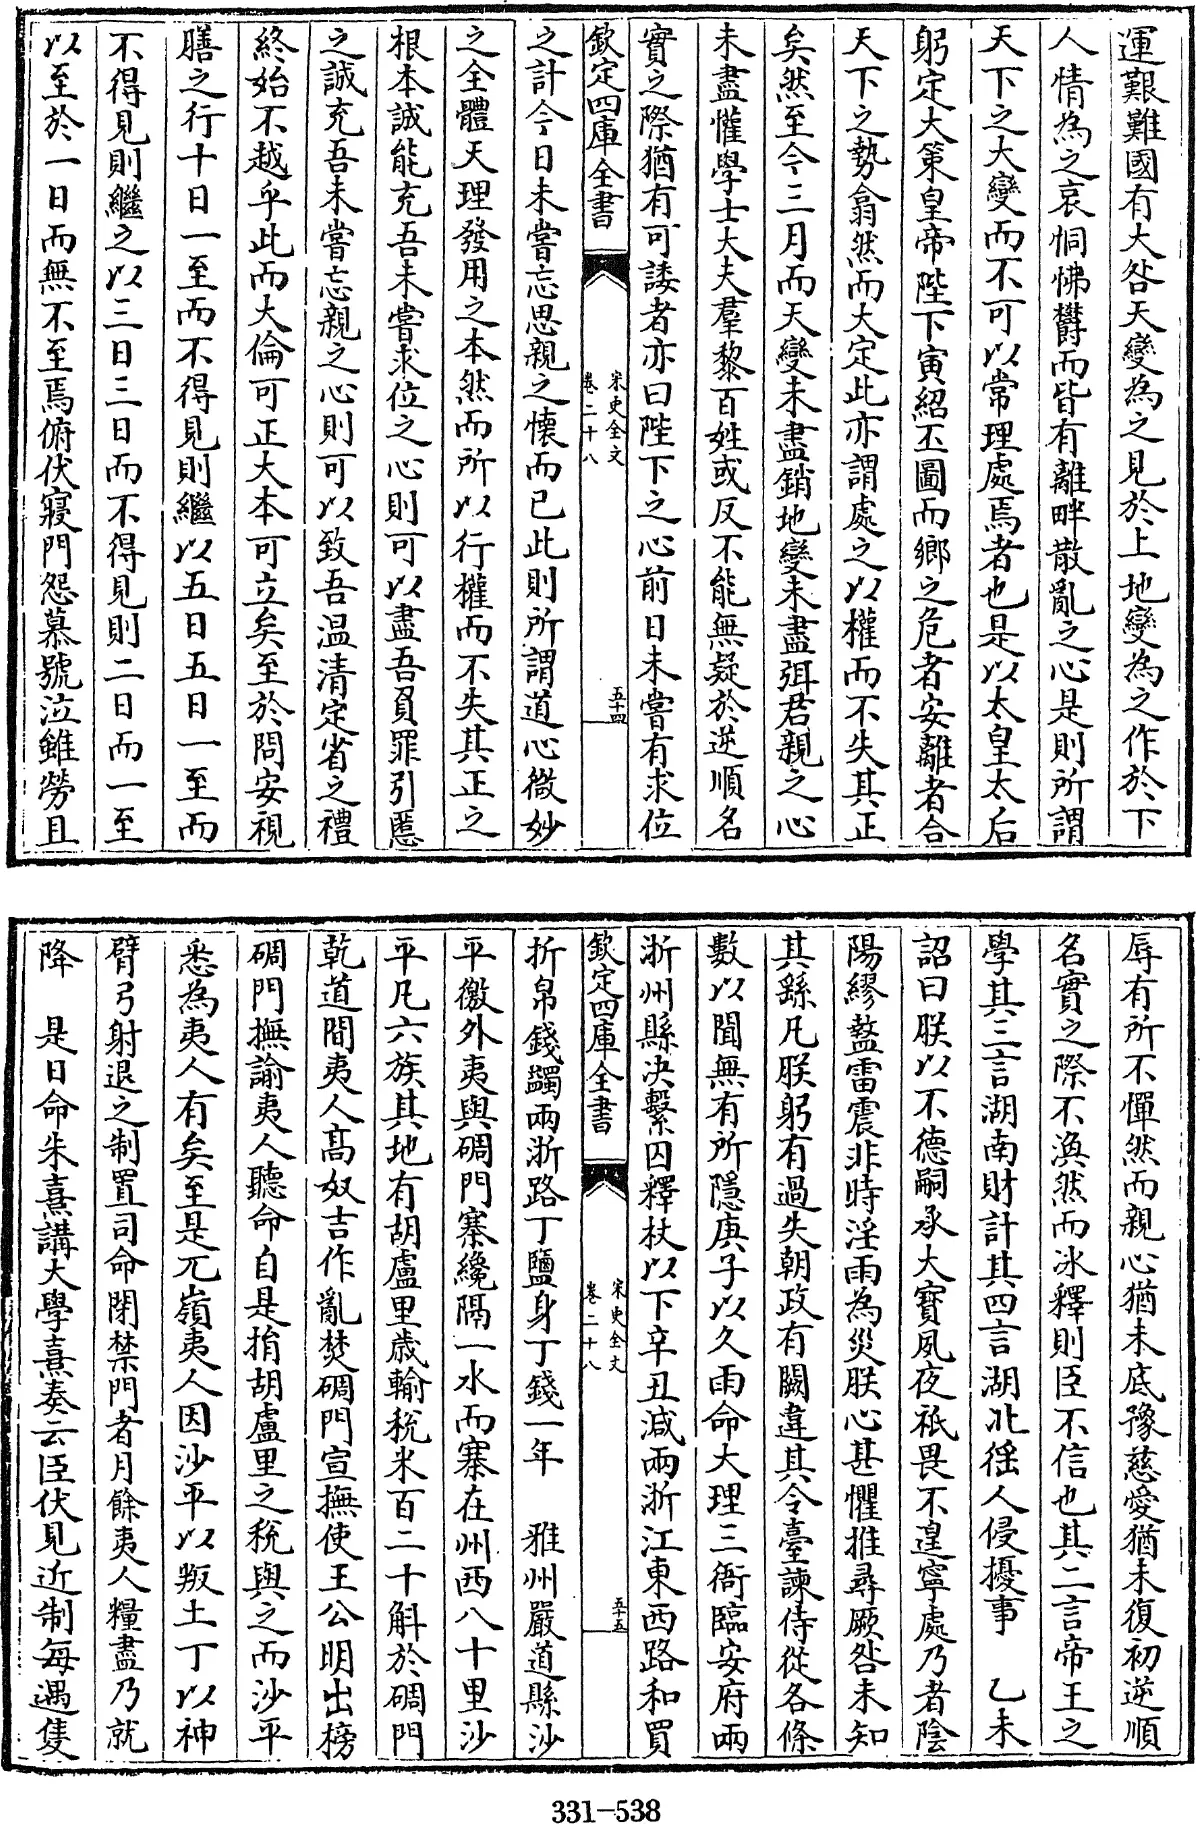 運艱難國有大咎天變為之見於上地變為之作於下
人情為之哀恫怫欝而皆有離畔散亂之心是則所謂
天下之大變而不可以常理處焉者也是以太皇太后
躬定大策皇帝陛下寅紹丕圖而鄉之危者安離者合
天下之勢翕然而大定此亦謂處之以權而不失其正
矣然至今三月而天變未盡銷地變未盡弭君親之心
未盡懽學士大夫羣黎百姓或反不能無疑於逆順名
實之際猶有可諉者亦曰陛下之心前日未嘗有求位
欽定四庫全書
宋史全文
卷二十八
五十四
之計今日未嘗忘思親之懷而已此則所謂道心微妙
之全體天理發用之本然而所以行權而不失其正之
根本誠能充吾未嘗求位之心則可以盡吾負罪引慝
之誠充吾未嘗忘親之心則可以致吾温凊定省之禮
終始不越乎此而大倫可正大本可立矣至於問安視
膳之行十日一至而不得見則繼以五日五日一至而
不得見則繼之以三日三日而不得見則二日而一至
以至於一日而無不至焉俯伏寢門怨慕號泣雖勞且
辱有所不憚然而親心猶未底豫慈愛猶未復初逆順
名實之際不渙然而冰釋則臣不信也其二言帝王之
學其三言湖南財計其四言湖北徭人侵擾事　乙未
詔曰朕以不德嗣承大寶夙夜祇畏不遑寧處乃者陰
陽繆盭雷震非時淫雨為災朕心甚懼推尋厥咎未知
其繇凡朕躬有過失朝政有闕違其令臺諫侍從各條
數以聞無有所隱庚子以久雨命大理三衙臨安府兩
浙州縣决繫囚釋杖以下辛丑減兩浙江東西路和買
欽定四庫全書
宋史全文
卷二十八
五十五
折帛錢蠲兩浙路丁鹽身丁錢一年　雅州嚴道縣沙
平徼外夷與碉門寨纔隔一水而寨在州西八十里沙
平凡六族其地有胡盧里歳輸稅米百二十斛於碉門
乾道間夷人高奴吉作亂焚碉門宣撫使王公明出榜
碉門撫諭夷人聽命自是捐胡盧里之稅與之而沙平
悉為夷人有矣至是兀嶺夷人因沙平以叛土丁以神
臂弓射退之制置司命閉禁門者月餘夷人糧盡乃就
降　是日命朱熹講大學熹奏云臣伏見近制每遇隻
331-538